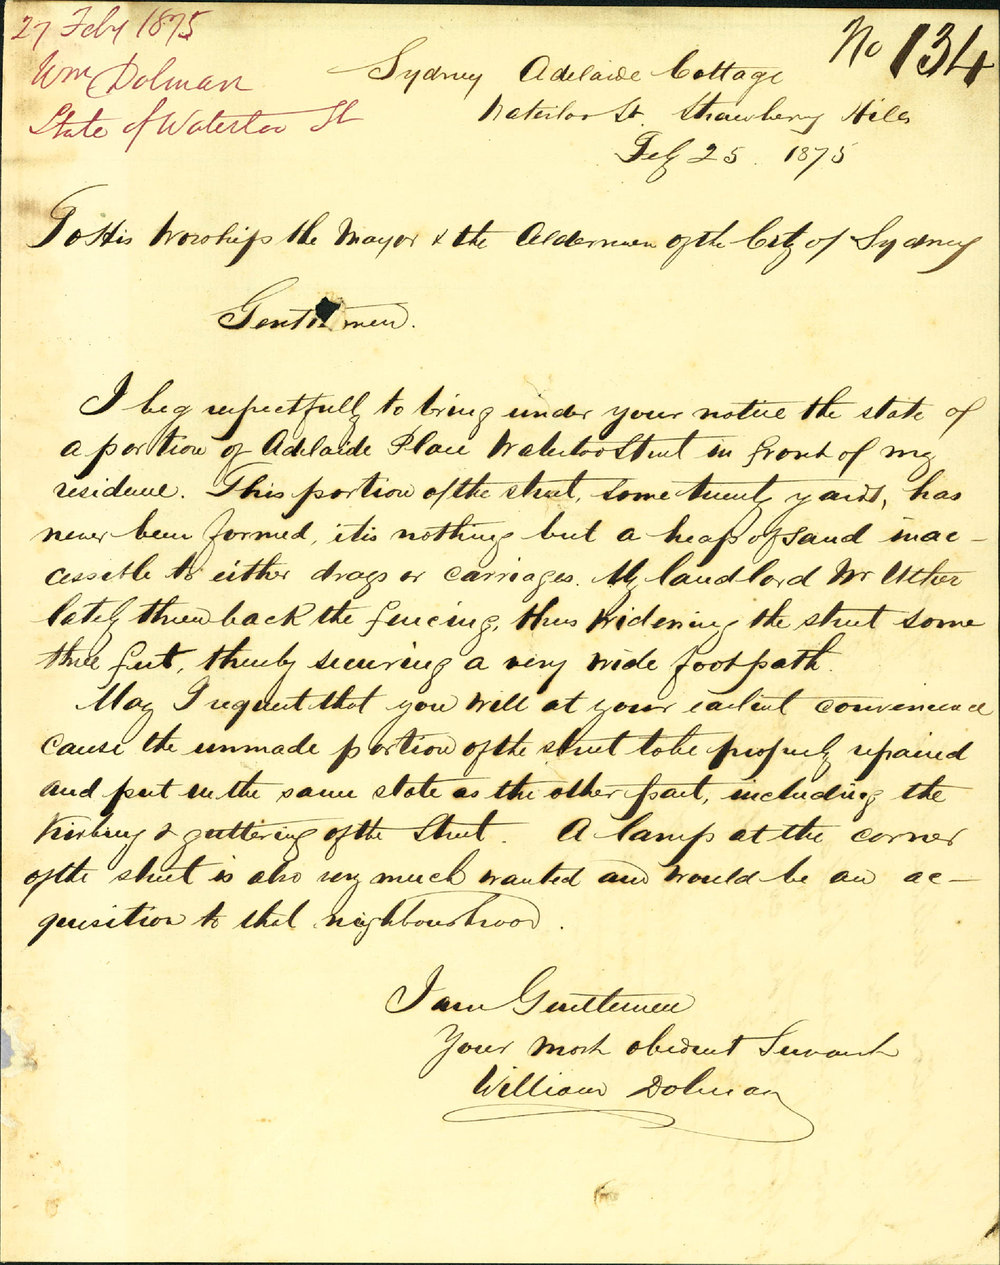 27 Feby 1875
Wm Dolman
State of Waterloo St
No 134
Sydney Adelaide Cottage
Waterloo St. Strawberry Hills
Feby 25 1875
To His Worship the Mayor & the Aldermen of the City of Sydney
Gentlemen.
I beg respectfully to bring under your notice the state of
a portion of Adelaide Place Waterloo Street in front of my
residence. This portion of the street, some twenty yards, has
never been formed, it is nothing but a heap of sand inac-
cessible to either drags or carriages. My landlord Mr Uther
lately threw back the fencing, thus widening the street some
three feet, thereby securing a very wide footpath.
May I request that you will at your earliest convenience
cause the unmade portion of the street to be properly repaired
and put in the same state as the other part, including the
Kirbing & guttering of the Street. A lamp at the corner
of the street is also very much wanted and would be an ac-
quisition to that neighbourhood.
I am Gentlemen
Your most obedient Servant
William Dolman